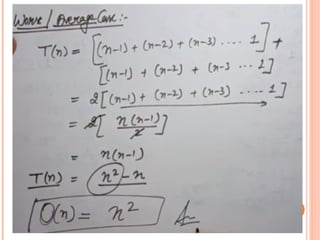 Worse / Average Case :-
T(n) = [(n-1) + (n-2) + (n-3) .... 1] +
[(n-1) + (n-2) + (n-3 ... 1]
= 2[(n-1) + (n-2) + (n-3) .... 1]
= 2[ n(n-1) / 2 ]
= n(n-1)
T(n) = n² - n
O(n) = n²